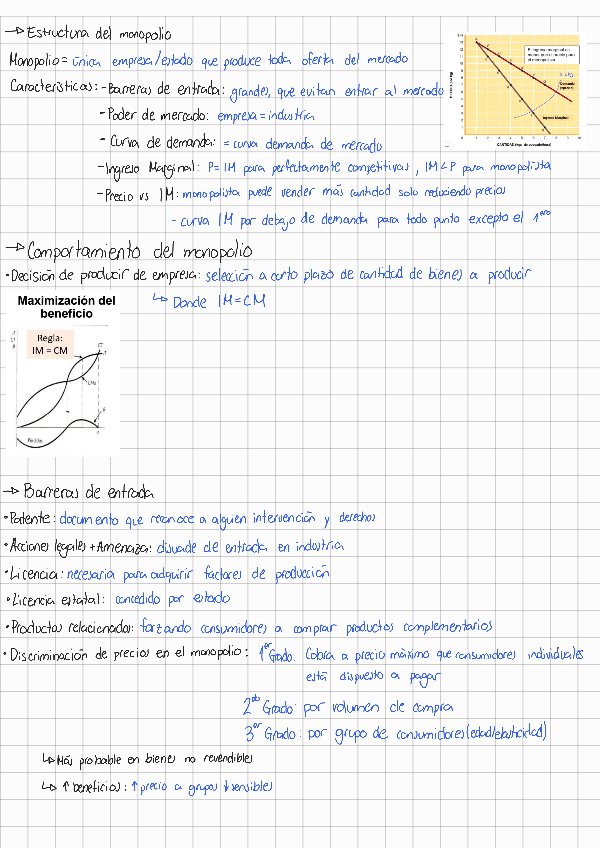 → Estructura del monopolio
Monopolio = única empresa/estado que produce toda oferta del mercado
Características: - Barreras de entrada: grandes, que evitan entrar al mercado
- Poder de mercado: empresa = industria
- Curva de demanda: = curva demanda de mercado
- Ingreso Marginal: P = IM para perfectamente competitivas, IM < P para monopolista
- Precio vs IM: monopolista puede vender más cantidad solo reduciendo precios
- curva IM por debajo de demanda para todo punto excepto el 1ero
El ingreso marginal es
menor que el precio para
el monopolista
Demanda
(precio)
Ingreso Marginal
0 1 2 3 4 5 6 7 8 9 10
→ Comportamiento del monopolio
• Decisión de producir de empresa: selección a corto plazo de cantidad de bienes a producir
↳ Donde IM = CM
Maximización del
beneficio
Regla:
IM = CM
IT
CT
B
CT
IT
B
Pérdidas
→ Barreras de entrada
• Patente: documento que reconoce a alguien intervención y derechos
• Acciones legales + Amenaza: disuade de entrada en industria
• Licencia: necesaria para adquirir factores de producción
• Licencia estatal: concedido por estado
• Productos relacionados: forzando consumidores a comprar productos complementarios
• Discriminación de precios en el monopolio: 1er Grado. Cobra a precio máximo que consumidores individuales
está dispuesto a pagar
2do Grado: por volumen de compra
3er Grado: por grupo de consumidores (edad/elasticidad)
↳ Más probable en bienes no revendibles
↳ ↑ beneficios: ↑ precio a grupos ↓ sensibles